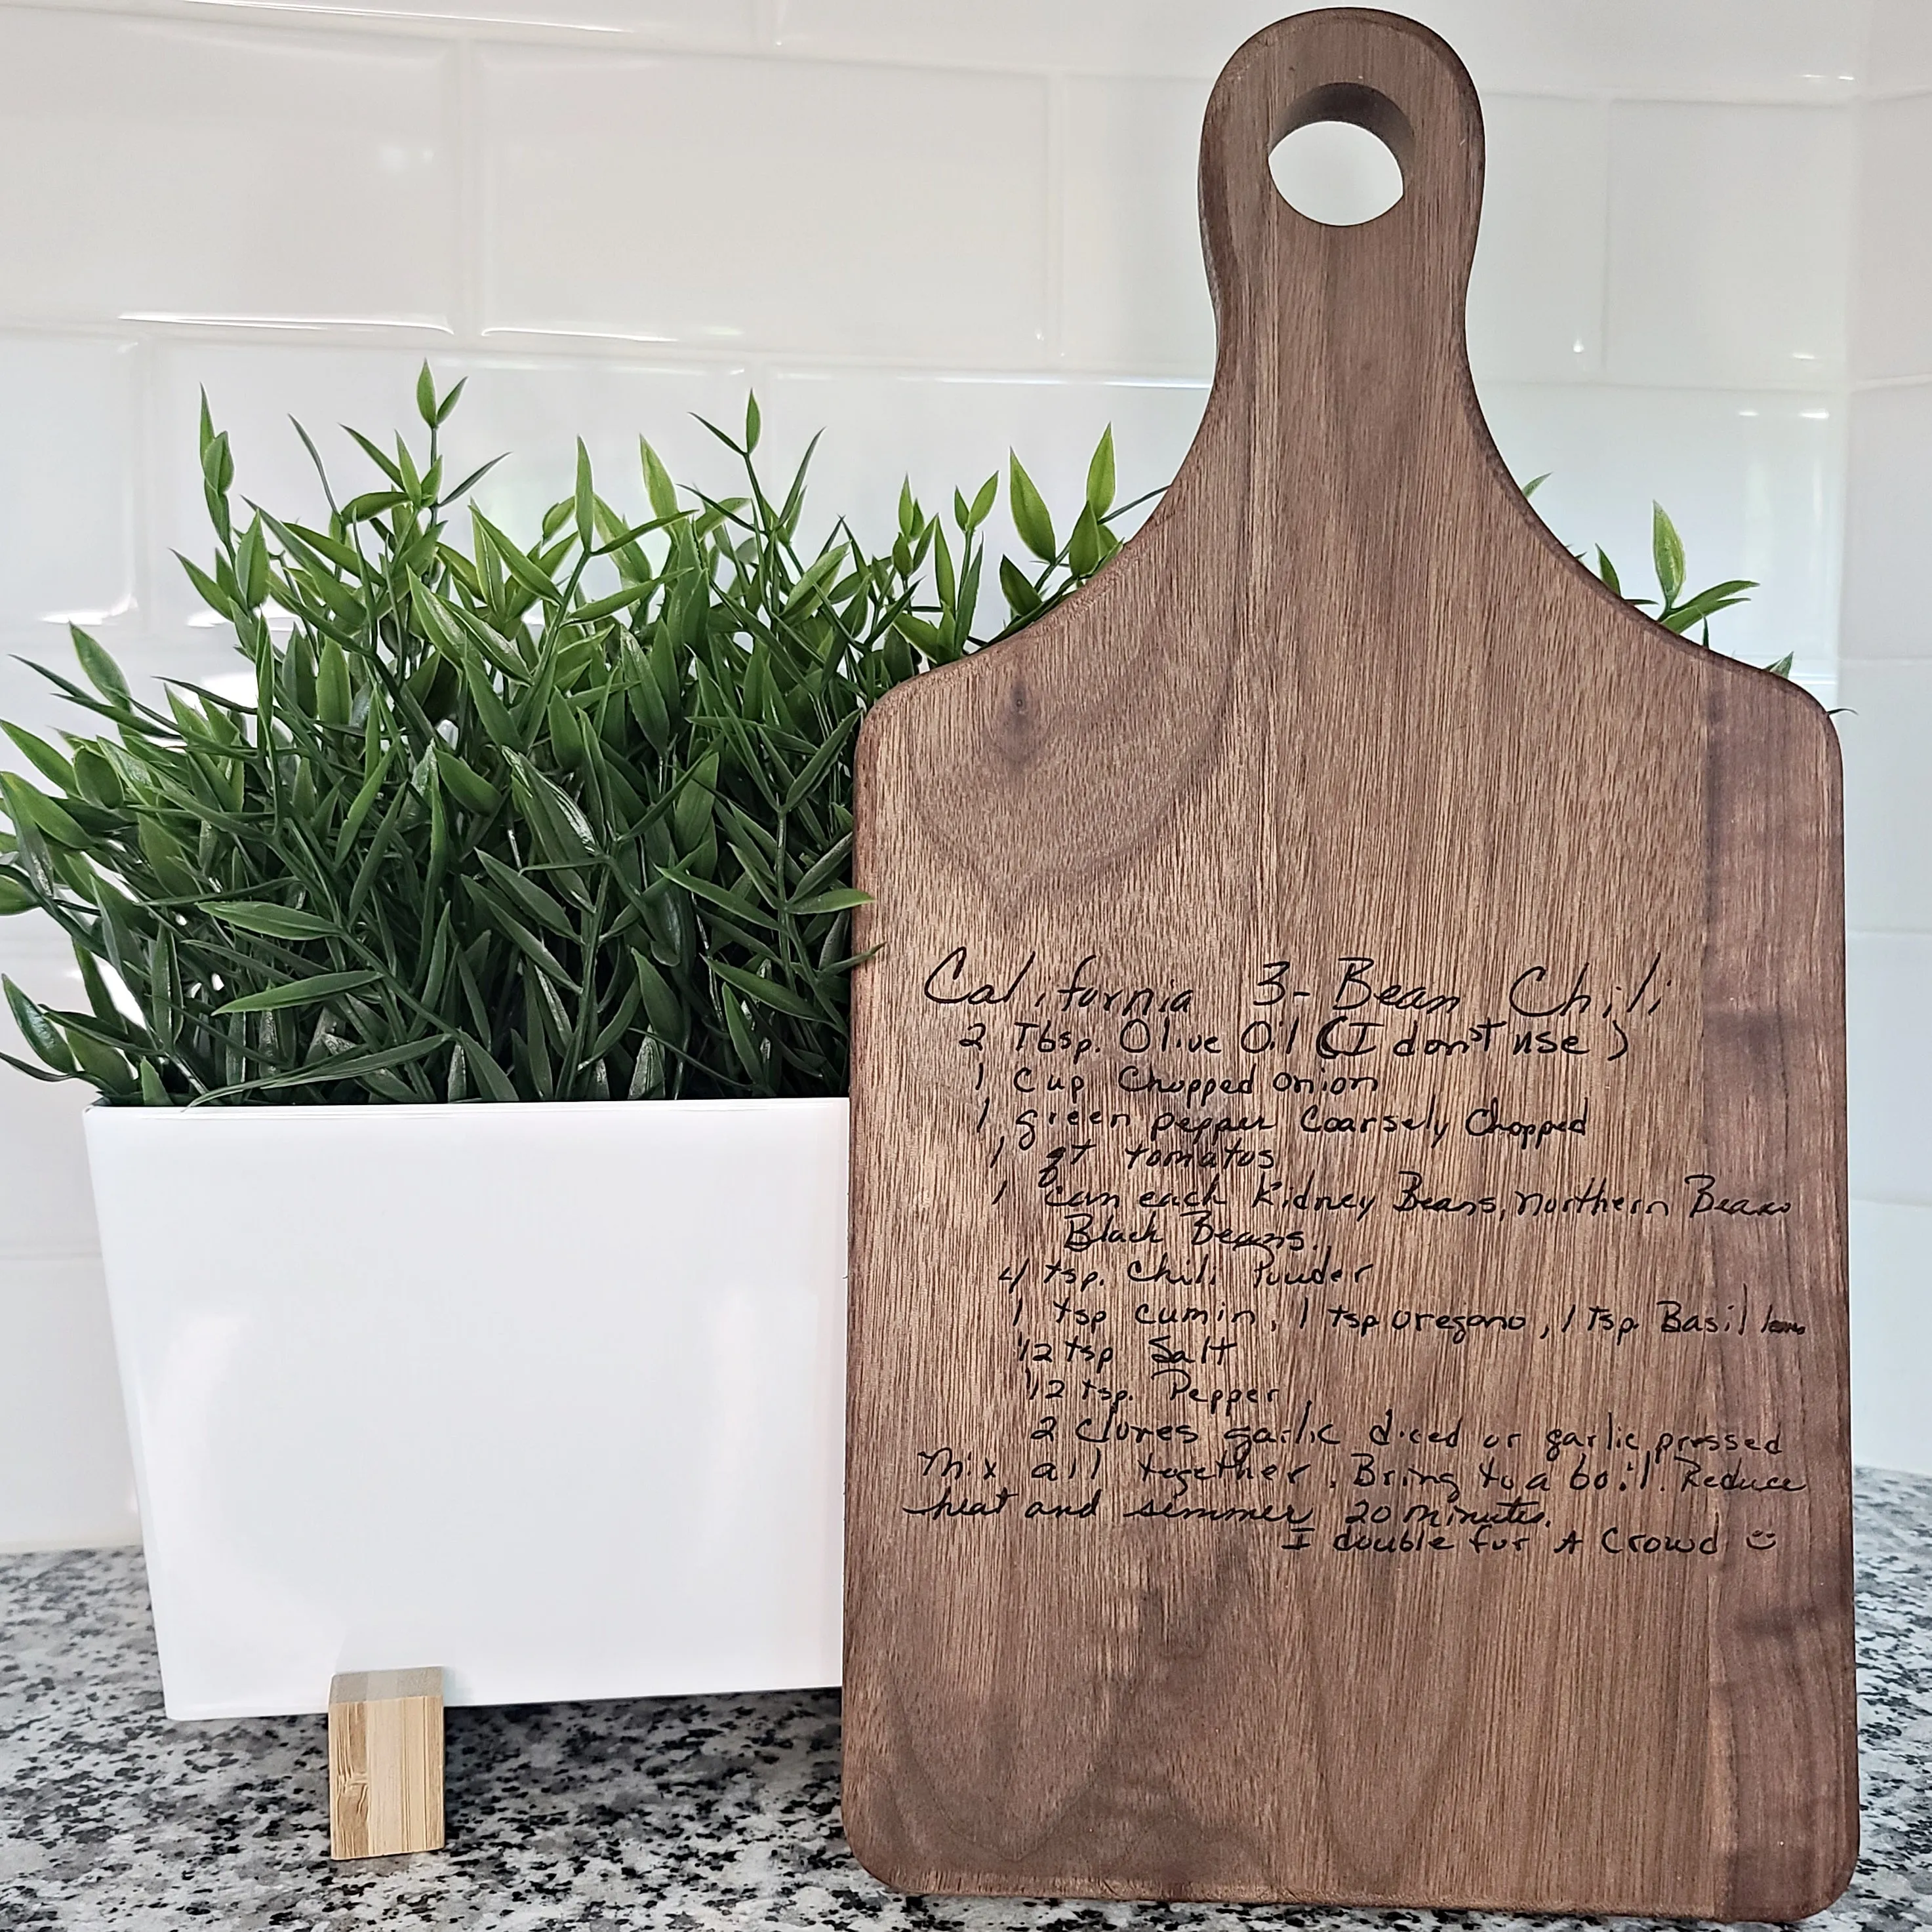 California 3-Bean Chili
2 Tbsp. Olive Oil (I don't use)
1 Cup Chopped onion
1 green pepper Coarsely Chopped
1 qt tomatos
1 can each Kidney Beans, Northern Beans
Black Beans.
4 tsp. Chili Powder
1 tsp cumin, 1 tsp oregano, 1 Tsp. Basil
1/2 tsp Salt
1/2 tsp. Pepper
2 Cloves garlic diced or garlic pressed
Mix all together. Bring to a boil. Reduce
heat and simmer 20 minutes.
I double for A Crowd